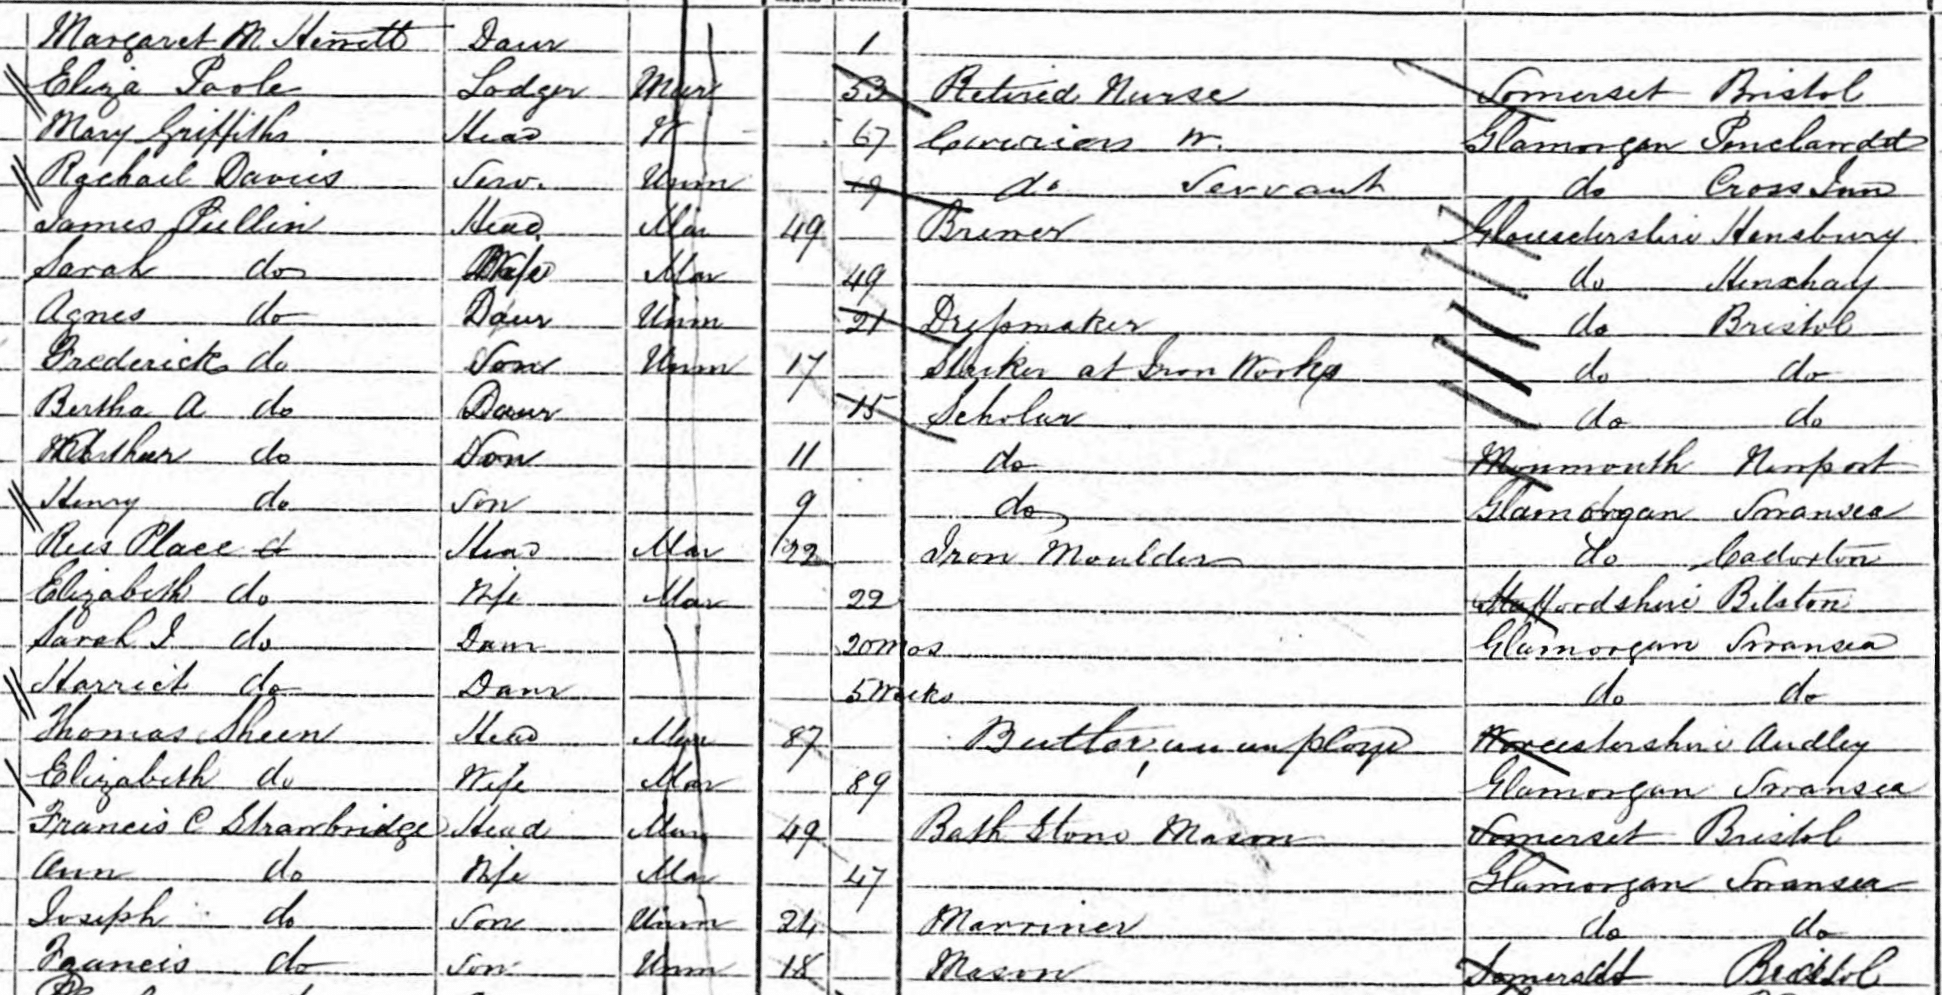 Margaret M Hewett Daur 1
Eliza Poole Lodger Mar 53 Retired Nurse Somerset Bristol
Mary Griffiths Head W 67 W. Glamorgan Penclawdd
Rachael Davies Serv. Unm 19 do Servant do Cross Inn
James Pullin Head Mar 49 Brewer Glousdershire Henbury
Sarah do Wife Mar 49 do
Agnes do Daur Unm 21 Dressmaker do Bristol
Frederick do Son Unm 17 at Iron Works do do
Bertha A do Daur 15 Scholar do do
Arthur do Son 11 do Monmouth Newport
Henry do Son 9 do Glamorgan Swansea
Rees Place Head Mar 22 Iron Moulder do Cadoxton
Elizabeth do Wife Mar 22 Staffordshire Bilston
Sarah J do Daur 20mos Glamorgan Swansea
Harriet do Daur 5 Weeks do do
Thomas Sheen Head Mar 87 Butler, unemployd Worcestershire Audley
Elizabeth do Wife Mar 89 Glamorgan Swansea
Francis C Strawbridge Head Mar 49 Bath Stone Mason Somerset Bristol
Ann do Wife Mar 47 Glamorgan Swansea
Joseph do Son Unm 24 Marriner do do
Francis do Son Unm 18 Mason Somerset Bristol